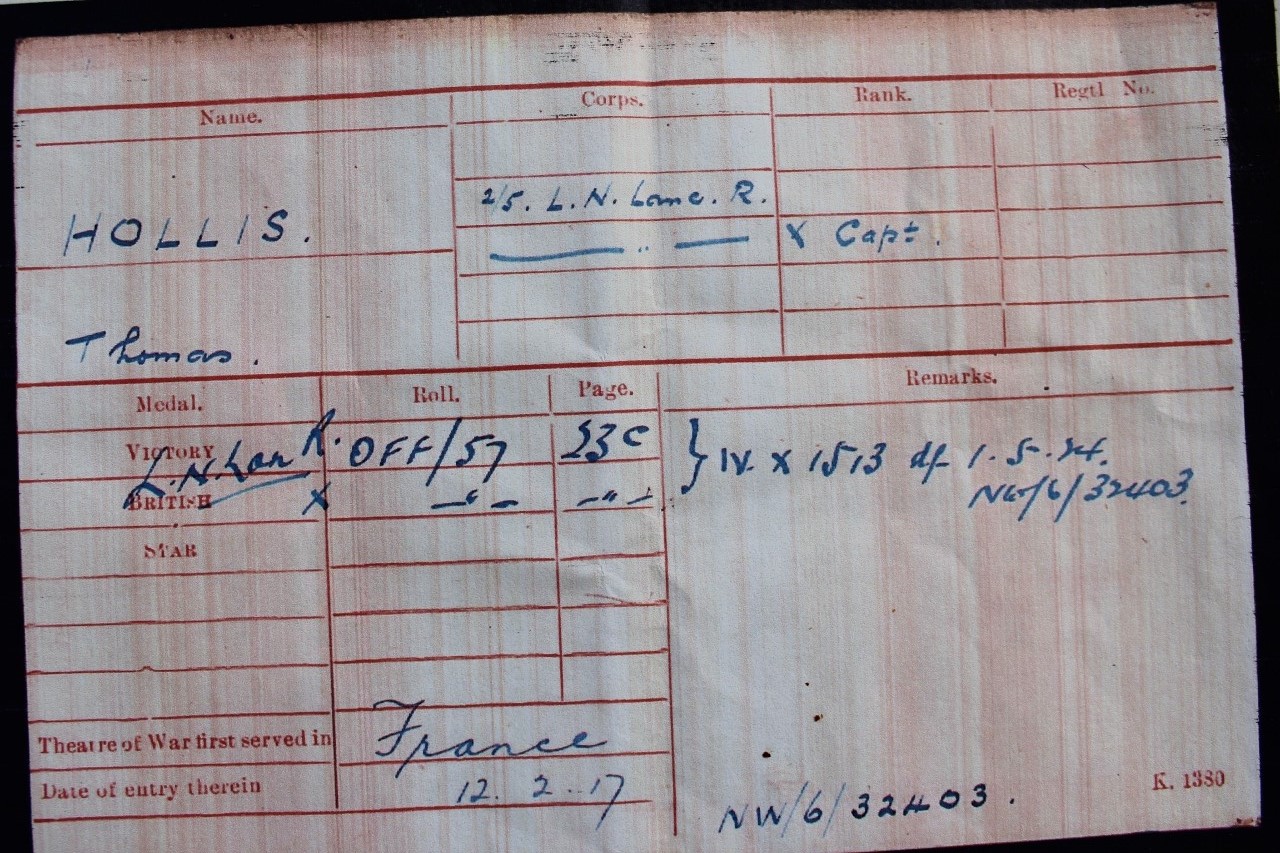 Name. Corps. Rank. Regtl No.
2/5. L. N. Lanc. R.
HOLLIS. — " — X Capt.
Thomas.
Medal. Roll. Page. Remarks.
VICTORY L.N.Lan R. OFF/57 53C } IV. X 1513 df 1.5.24.
BRITISH X —"— —"— NW/6/32403.
STAR
Theatre of War first served in France
Date of entry therein 12. 2. 17
K. 1380
NW/6/32403.